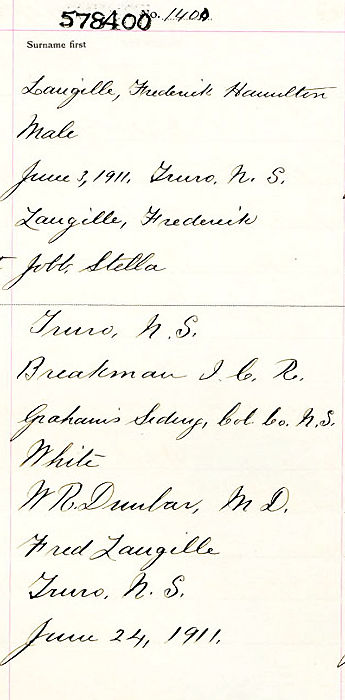 578400 No. 1400
Surname first
Langille, Frederick Hamilton
Male
June 3, 1911. Truro, N. S.
Langille, Frederick
Jobb, Stella
Truro, N. S.
Breakman I. C. R.
Graham's Siding, Col. Co. N.S.
White
W R Dunbar, M D.
Fred Langille
Truro, N. S.
June 24, 1911.